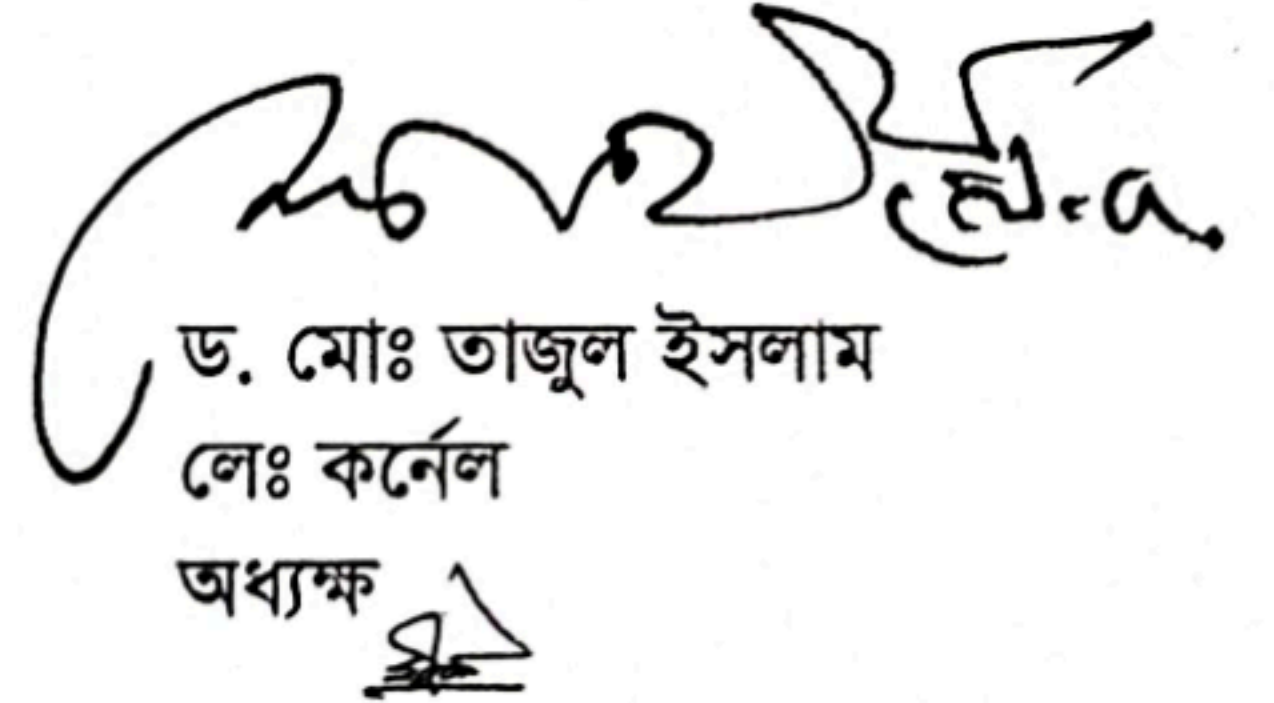 ড. মোঃ তাজুল ইসলাম
লেঃ কর্নেল
অধ্যক্ষ